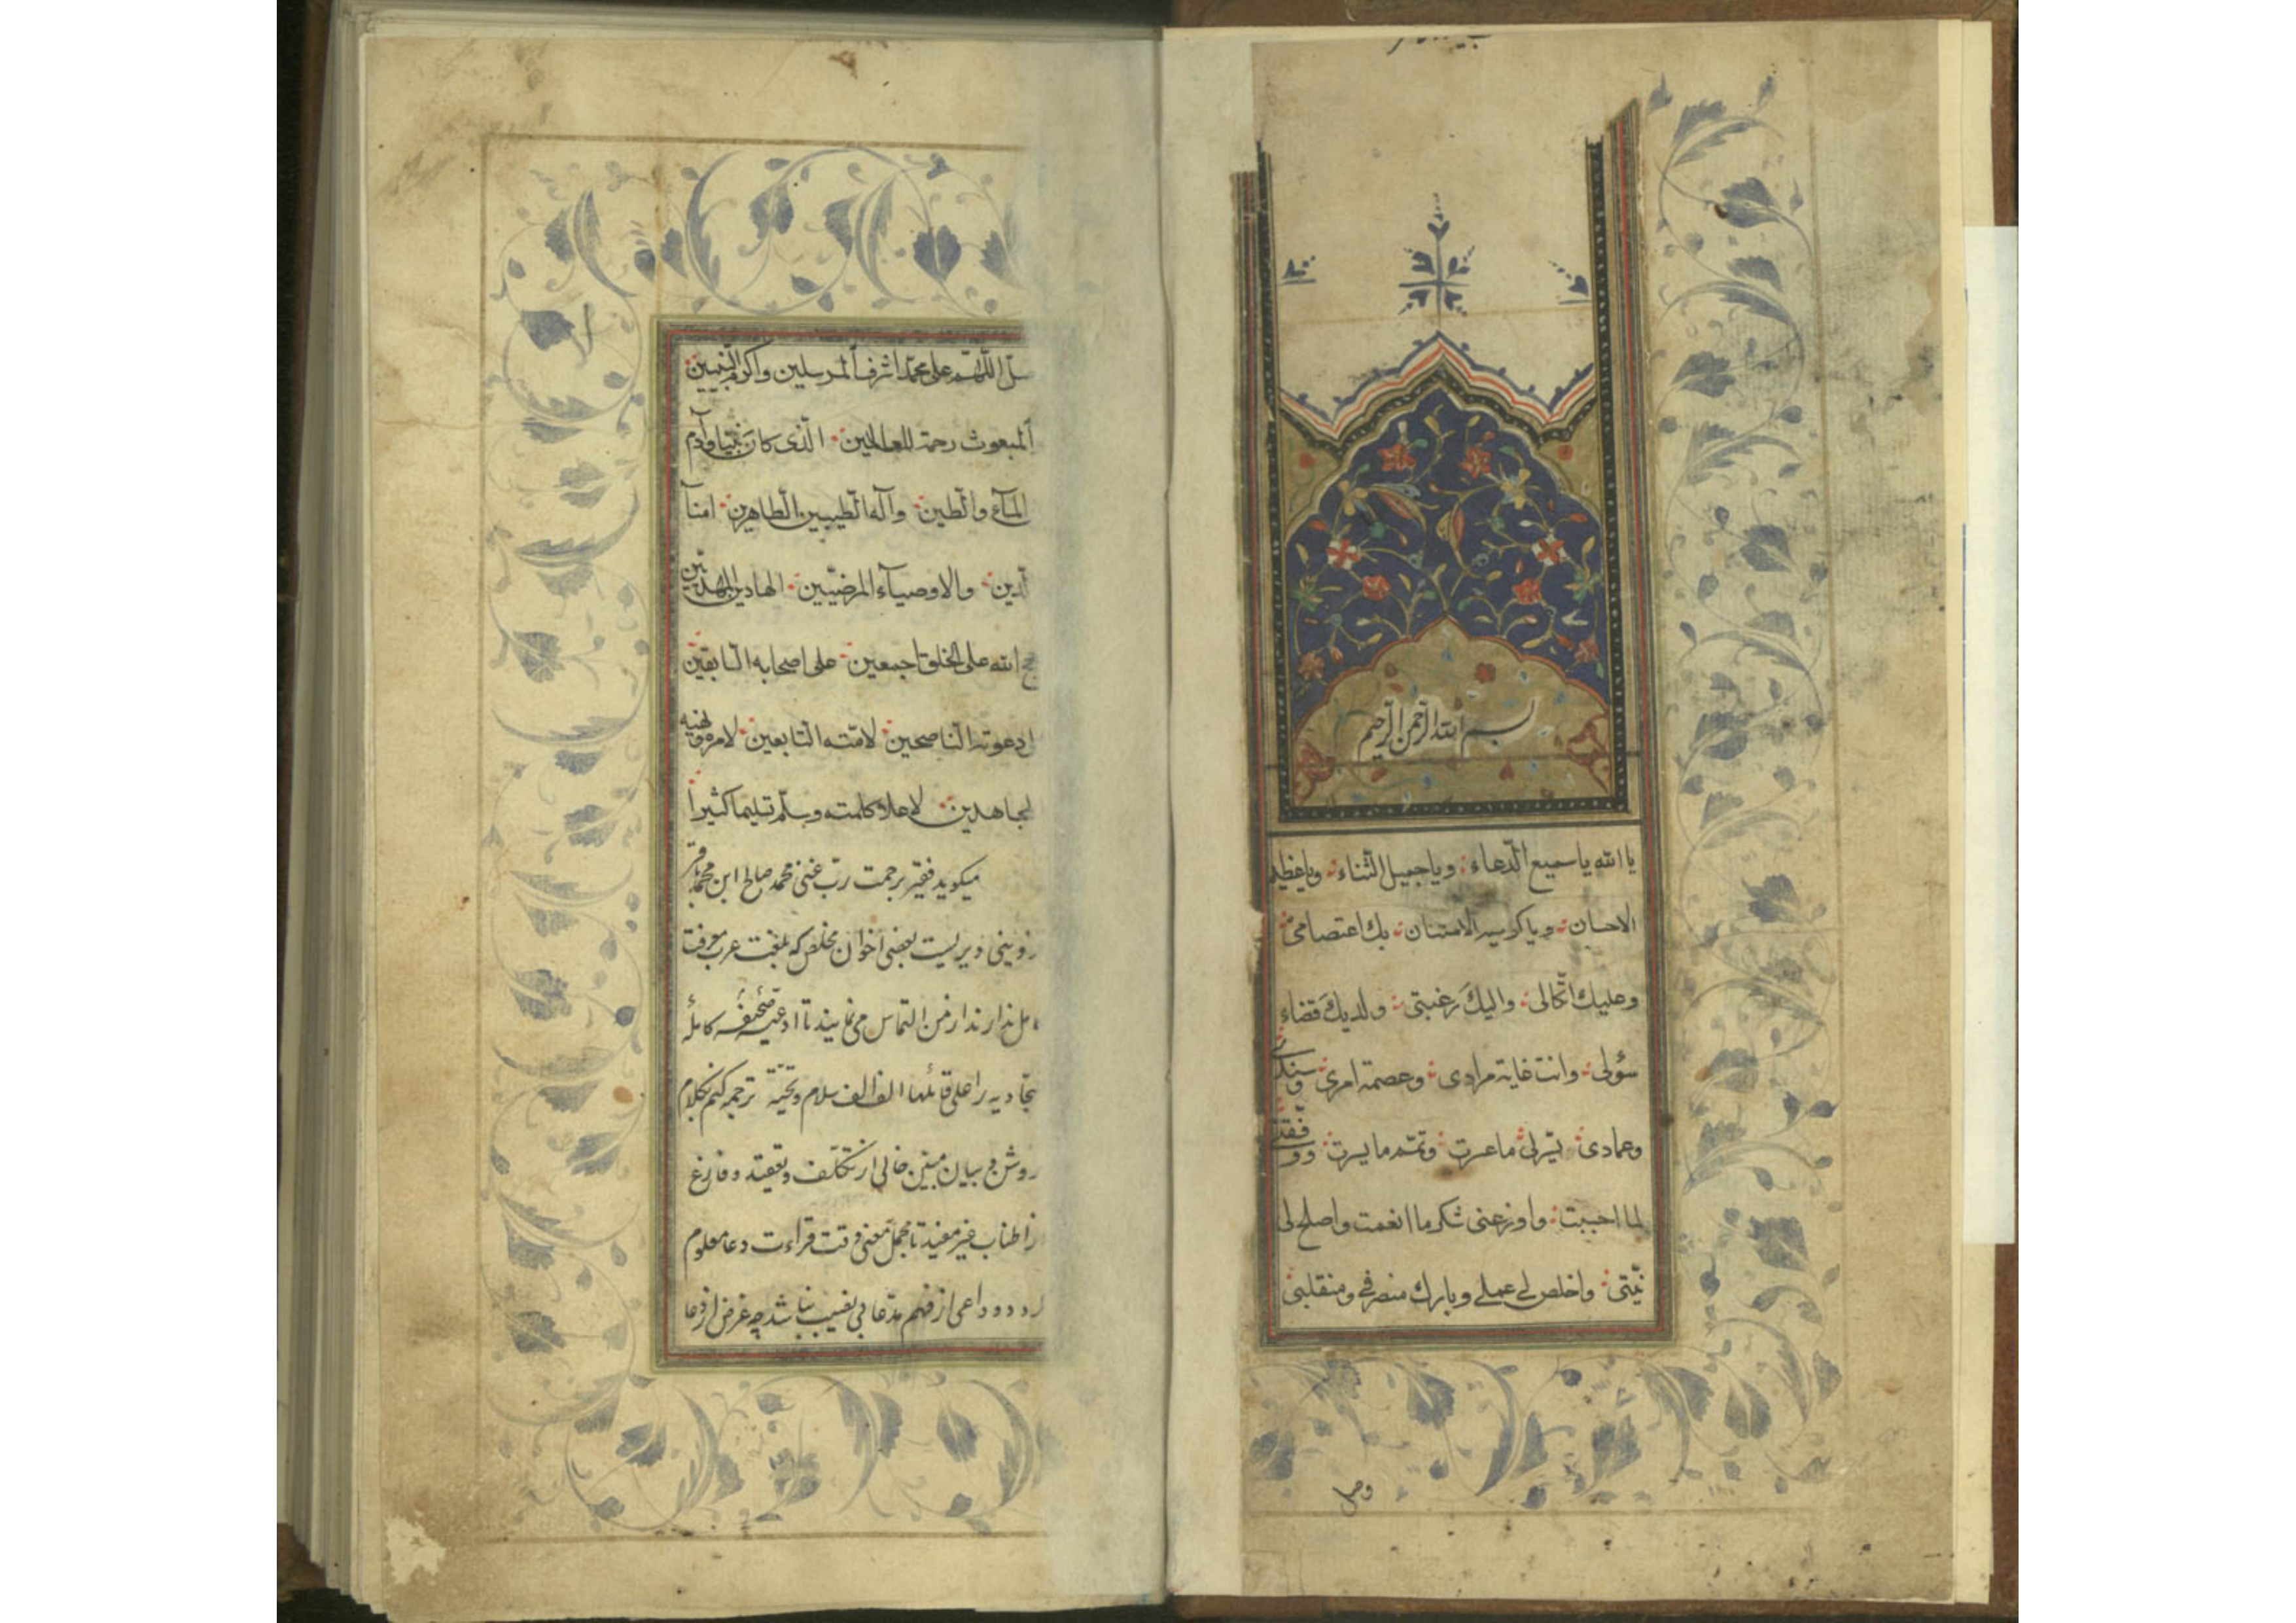 بسم الله الرحمن الرحیم
یا الله یا سمیع الدّعاء ویا جمیل الثّناء ویا عظیم
الاحسان ویا کریم الامتنان بك اعتصامی
وعلیك اتّکالی والیكَ رغبتی ولدیكَ قضاء
سؤلی وانت غایة مرادی وعصمة امری وسندی
وعمادی یسّرلی ما عسرت وتمّم ما یسرت ووفّقنی
لما احببت واوزعنی شکر ما انعمت واصلح لی
نیّتی واخلص لی عملی وبارك منصرفی ومنقلبی
وصل
صلّ اللّهمّ علی محمّد اشرف المرسلین واکرم النّبیین
المبعوث رحمة للعالمین الّذی کانَ نبیّا وآدم
المآء والطین وآله الطّیبین الطّاهرین امنآ
الدین والاوصیآء المرضیّین الهادین المهدیّین
حجج الله علی الخلق اجمعین علی اصحابه السّابقین
دعوته النّاصحین لامّته التّابعین لامره ونهیه
المجاهدین لاعلاء کلمته وسلّم تسلیما کثیرا
میکوید فقیر برحمت ربّ غنی محمد صالح ابن محمد باقر
زوینی دیریست بعضی اخوان مخلص که بلغت عرب معرفت
کامل ندارند ازمن التماس می نمایند تا ادعیهٔ صحیفهٔ کاملهٔ
سجّادیه را علی قائلها الف الف سلام وتحیّة ترجمه کنم بکلام
روشن و بیان مبین خالی از تکلّف وتعقید وفارغ
از اطناب غیر مفید تا مجمل معنی وقت قراءت دعا معلوم
کردد وداعی از فهم مدّعا بی نصیب نباشد چه غرض از دعا